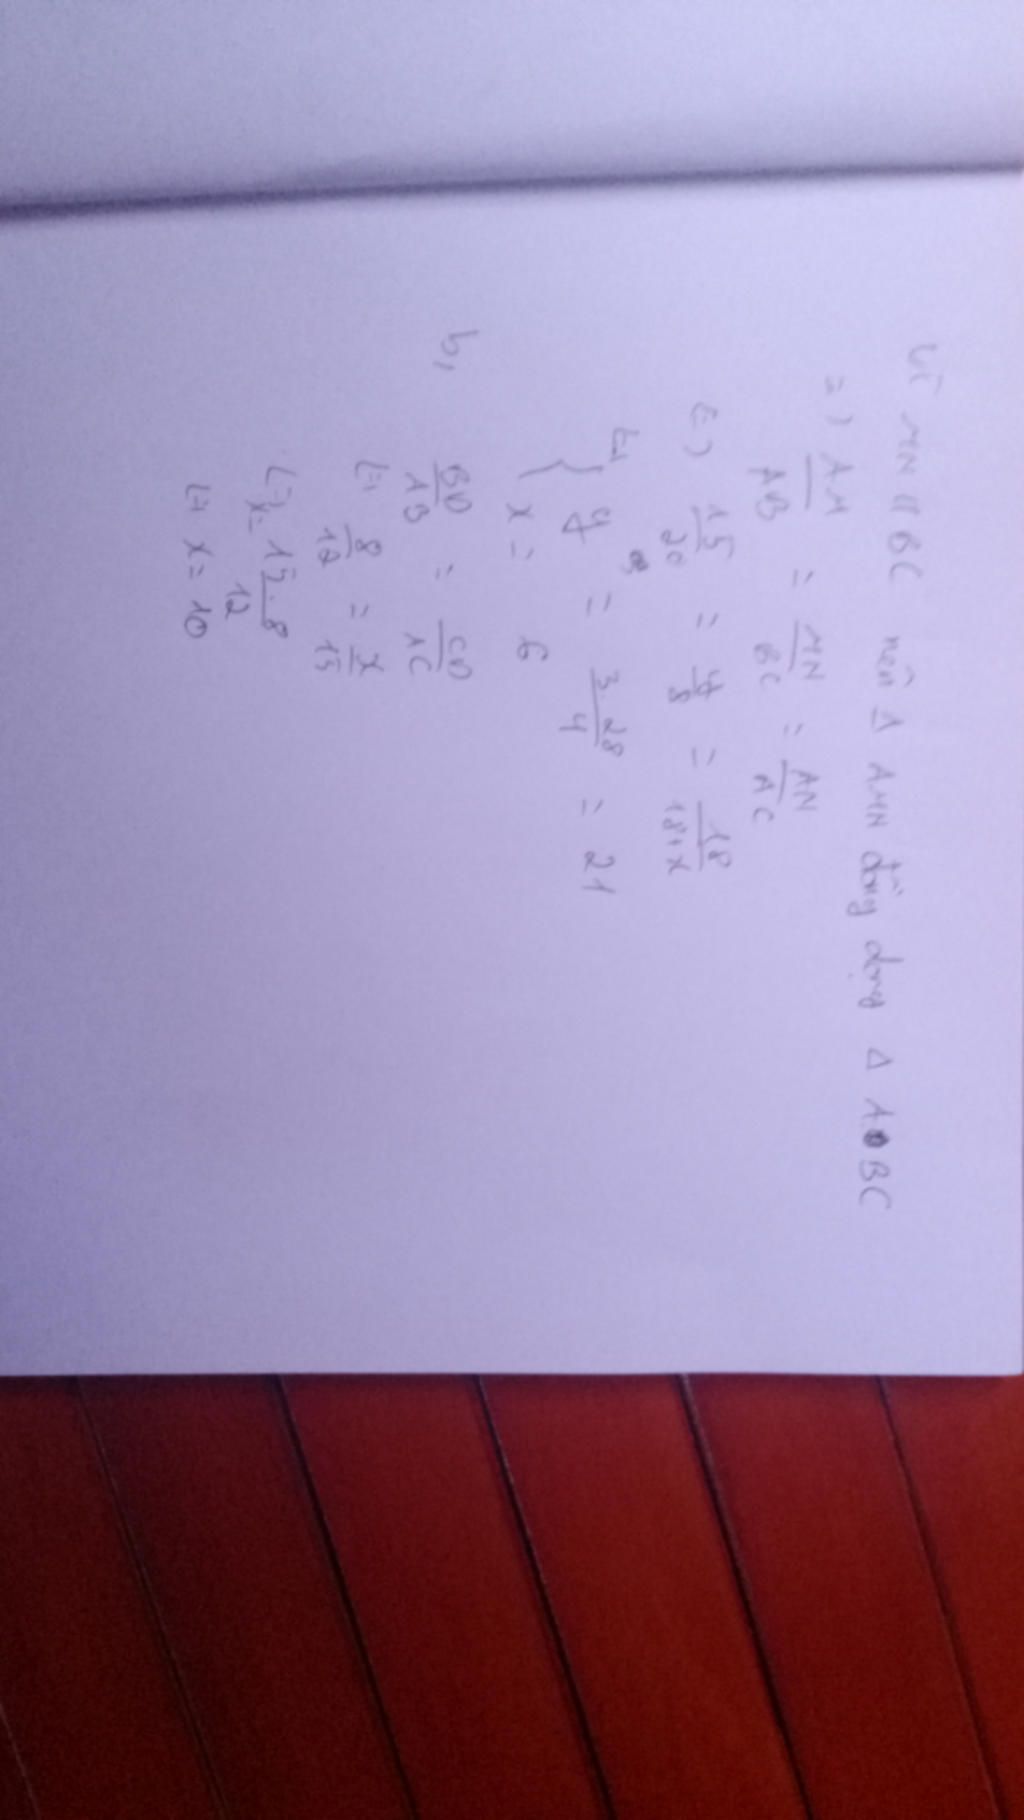 Vì MN // BC nên Δ AMN đồng dạng Δ ABC
=> AM/AB = MN/BC = AN/AC
<=> 15/20 = y/28 = 18/18+x
<=> { y = 3.28/4 = 21
x = 6
b, BD/AB = CD/AC
<=> 8/12 = x/15
<=> x = 15.8/12
<=> x = 10